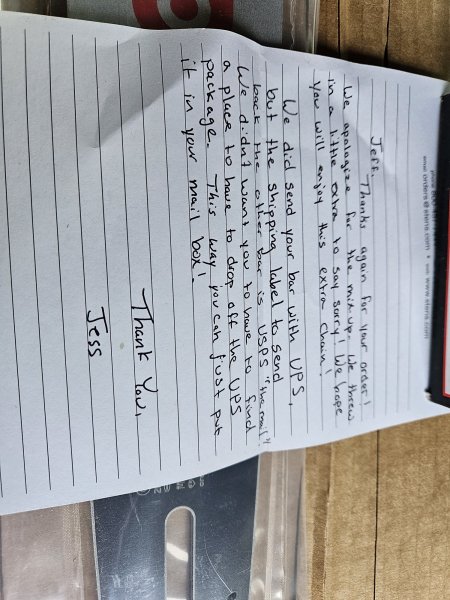 Jeff,
Thanks again for your order!
We apologize for the mix up! We threw
in a little extra to say sorry! We hope
you will enjoy this extra chain!
We did send your bar with UPS,
but the shipping label to send
back the other bar is USPS "the mail".
We didn't want you to have to find
a place to have to drop off the UPS
package. This way you can just put
it in your mail box!
Thank You,
Jess